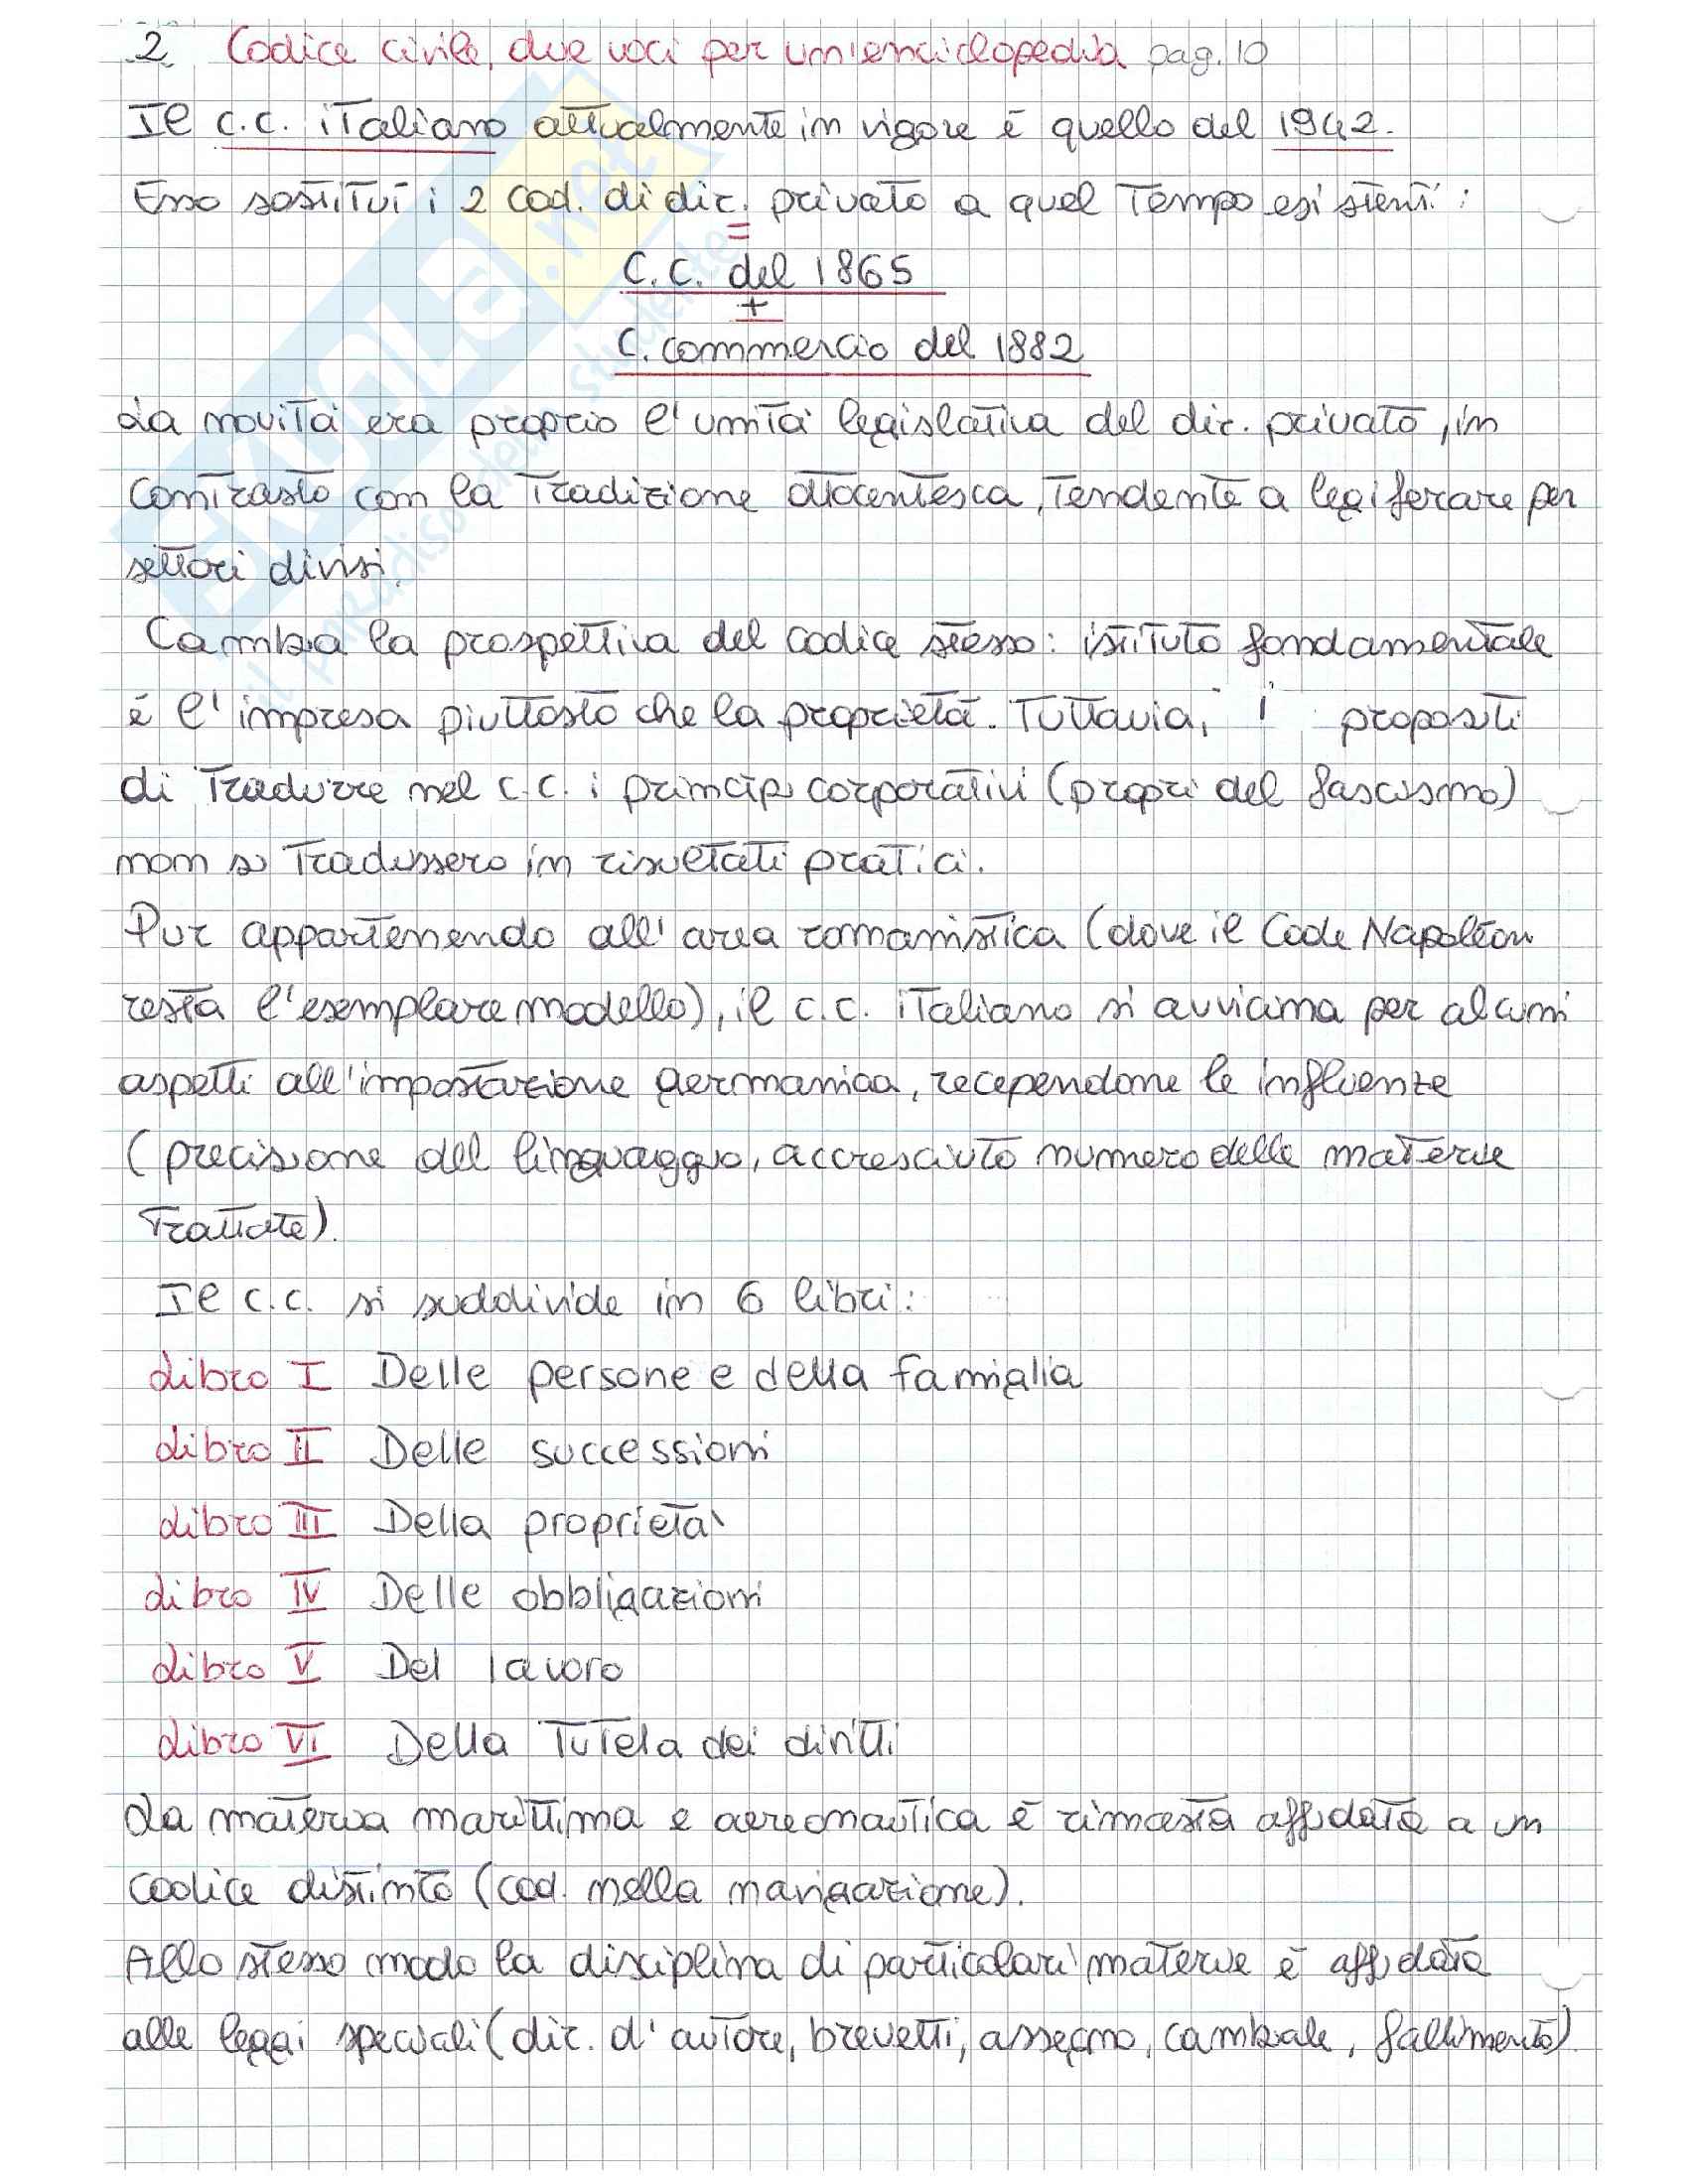 2 Codice civile, due voci per un'enciclopedia pag. 10
Il c.c. italiano attualmente in vigore è quello del 1942.
Esso sostituì i 2 cod. di dir. privato a quel tempo esistenti:
=
C.C. del 1865
+
C. commercio del 1882
La novità era proprio l'unità legislativa del dir. privato, in
contrasto con la tradizione ottocentesca, tendente a legiferare per
settori divisi.
Cambia la prospettiva del codice stesso: istituto fondamentale
è l'impresa piuttosto che la proprietà. Tuttavia, i propositi
di tradurre nel c.c. i principi corporativi (propri del fascismo)
non si tradussero in risultati pratici.
Pur appartenendo all'area romanistica (dove il Code Napoléon
resta l'esemplare modello), il c.c. italiano si avvicina per alcuni
aspetti all'impostazione germanica, recependone le influenze
(precisione del linguaggio, accresciuto numero delle materie
trattate).
Il c.c. si suddivide in 6 libri:
Libro I Delle persone e della famiglia
Libro II Delle successioni
Libro III Della proprietà
Libro IV Delle obbligazioni
Libro V Del lavoro
Libro VI Della tutela dei diritti
La materia marittima e aereonautica è rimasta affidata a un
codice distinto (cod. nella navigazione).
Allo stesso modo la disciplina di particolari materie è affidata
alle leggi speciali (dir. d'autore, brevetti, assegno, cambiale, fallimento)
SKUOLA.net
il paradiso dello studente